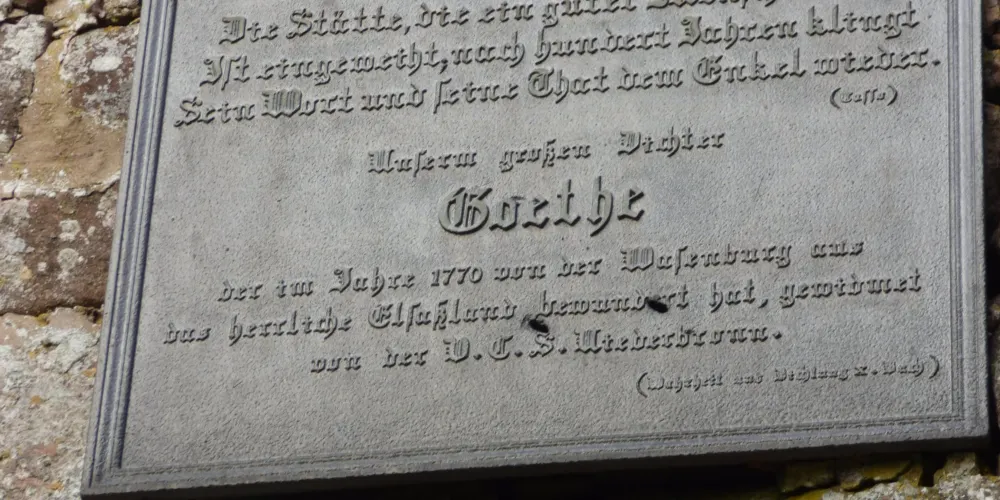 Die Stätte, die ein guter Mensch
Ist eingeweiht, nach hundert Jahren klingt
Sein Wort und seine That dem Enkel wieder.
(Tasso)
Unserm großen Dichter
Goethe
der im Jahre 1770 von der Wasenburg aus
das herrliche Elsaßland bewundert hat, gewidmet
von der V.C.S. Niederbronn.
(Wahrheit und Dichtung X. Buch)